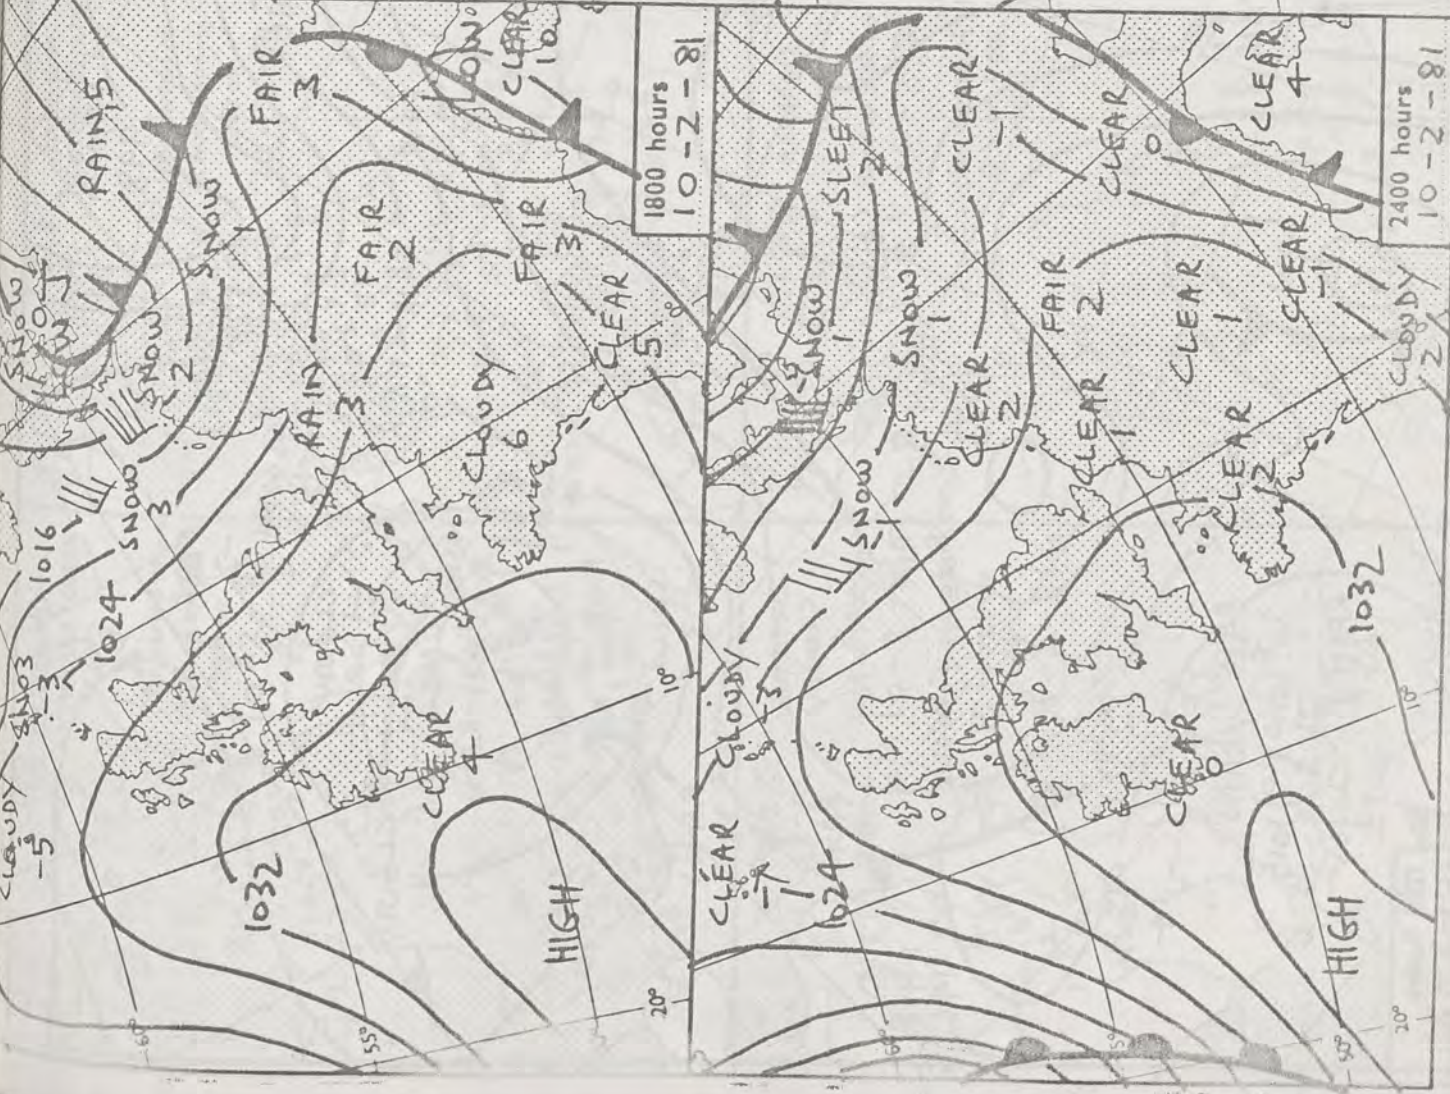 1800 hours
10-2-81
RAIN 5
FAIR
3
LOW
CLEAR
10
SNOW
1
SNOW
LOW
SNOW
-2
FAIR
2
FAIR
3
CLEAR
5
0°
RAIN
3
CLOUDY
6
SNOW
3
1016
1024
SNOW
-3
CLOUDY
-5
CLEAR
4
1032
HIGH
10°
20°
60°
55°
2400 hours
10-2-81
CLEAR
4
SLEET
2
CLEAR
-1
CLEAR
0
SNOW
1
SNOW
1
FAIR
2
CLEAR
1
CLEAR
-1
CLOUDY
2
CLEAR
2
CLEAR
1
CLEAR
2
SNOW
-1
CLOUDY
-3
CLEAR
1024
CLEAR
0
1032
HIGH
10°
20°
60°
50°